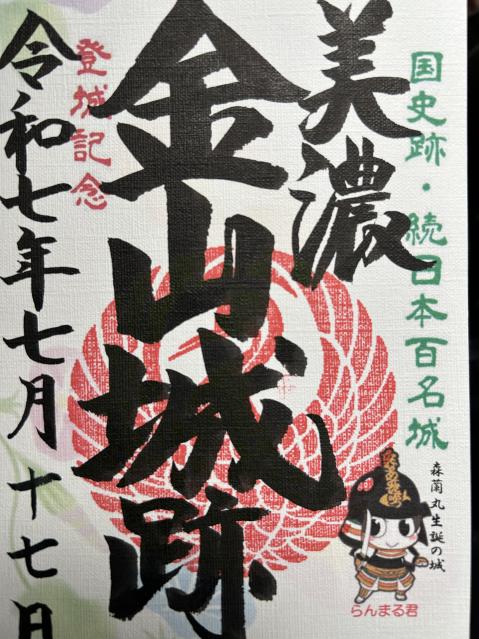 国史跡・続日本百名城
美濃
金山城跡
登城記念
令和七年七月十七日
森蘭丸生誕の城
らんまる君